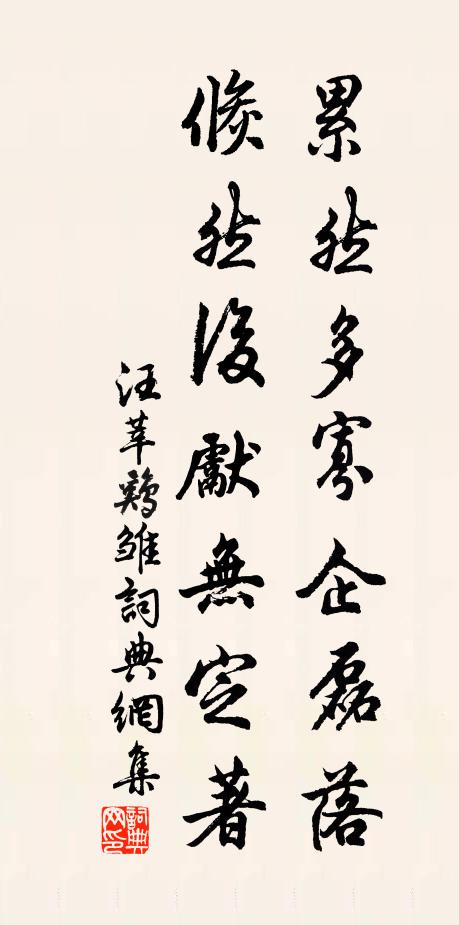 累然多寡企磊落
倐然後獻無定著
汪莘鷄雛詞典網集
詞典
网印